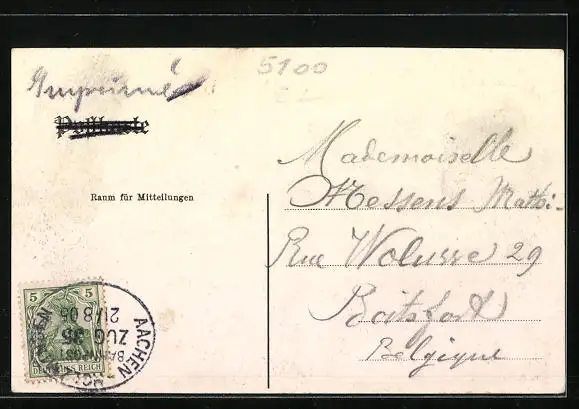 5100
Imprimé
Postkarte
Raum für Mitteilungen
Mademoiselle
Messens
Rue Wolusse 29
Boitsfort
Belgique
5 5
DEUTSCHES REICH
AACHEN
BAHNPOST
ZUG 35
21 8 05